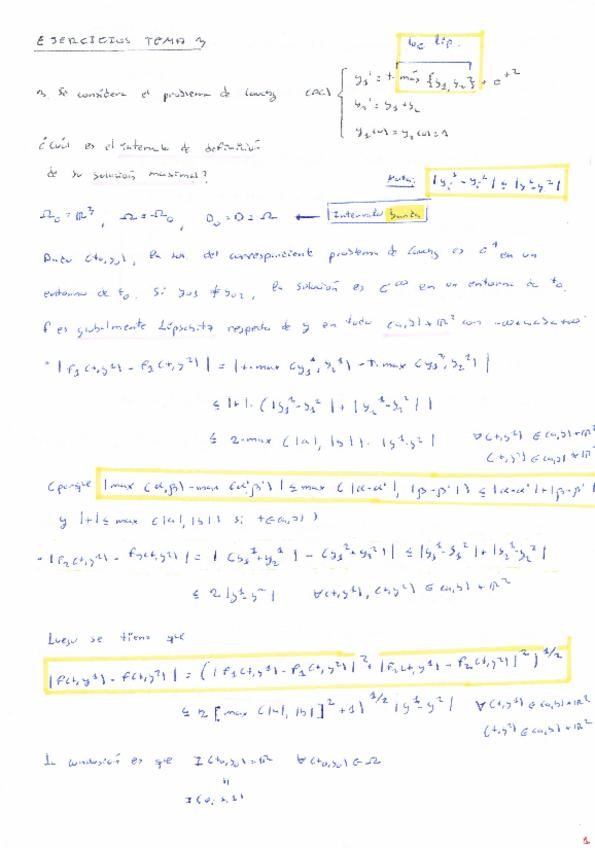 EJERCICIOS TEMA 3
loc lip.
3. Se considera el problema de Cauchy (PC) { y₁' = t · máx {y₁, y₂} + e^t²
y₂' = y₁ + y₂
y₁(0) = y₂(0) = 1
¿Cuál es el intervalo de definición
de su solución maximal?
Nota: |yᵢ¹ - yᵢ²| ≤ |y¹ - y²|
Ω₀ = ℝ³, Ω = Ω₀, D₀ = D = Ω ← Intervalo
Dato (t₀, y₀), la sol del correspondiente problema de Cauchy es C¹ en un
entorno de t₀. Si y₀₁ ≠ y₀₂, la solución es C^∞ en un entorno de t₀.
f es globalmente Lipschitz respecto de y en todo (a,b) × ℝ² con -∞<a<b<+∞
· |f₁(t,y¹) - f₁(t,y²)| = |t · max (y₁¹, y₂¹) - t · max (y₁², y₂²)|
≤ |t| · (|y₁¹ - y₁²| + |y₂¹ - y₂²|)
≤ 2 · max (|a|, |b|) · |y¹ - y²| ∀(t,y¹) ∈ (a,b) × ℝ²
(t,y²) ∈ (a,b) × ℝ²
(porque |max (α,β) - max (α',β')| ≤ max (|α-α'|, |β-β'|) ≤ |α-α'| + |β-β'|
y |t| ≤ max (|a|, |b|) si t ∈ (a,b))
· |f₂(t,y¹) - f₂(t,y²)| = |(y₁¹ + y₂¹) - (y₁² + y₂²)| ≤ |y₁¹ - y₁²| + |y₂¹ - y₂²|
≤ 2 |y¹ - y²| ∀(t,y¹), (t,y²) ∈ (a,b) × ℝ²
Luego se tiene que
|f(t,y¹) - f(t,y²)| = (|f₁(t,y¹) - f₁(t,y²)|² + |f₂(t,y¹) - f₂(t,y²)|²)^1/2
≤ 2 [max (|a|, |b|)² + 1]^1/2 |y¹ - y²| ∀(t,y¹) ∈ (a,b) × ℝ²
(t,y²) ∈ (a,b) × ℝ²
La conclusión es que I(t₀,y₀) = ℝ ∀(t₀,y₀) ∈ Ω
"
I(0,1,1)
1